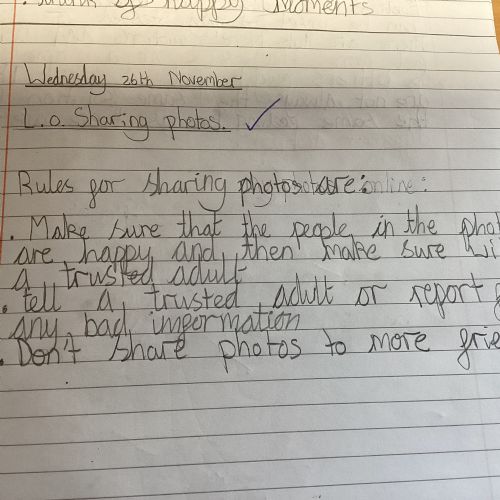 Think of happy moments
Wednesday 26th November
L.o. Sharing photos.
Rules for sharing photos are:
. Make sure that the people in the phot
are happy and then make sure wi
a trusted adult
. tell a trusted adult or report
any bad impormation
. Don't share photos to more frie